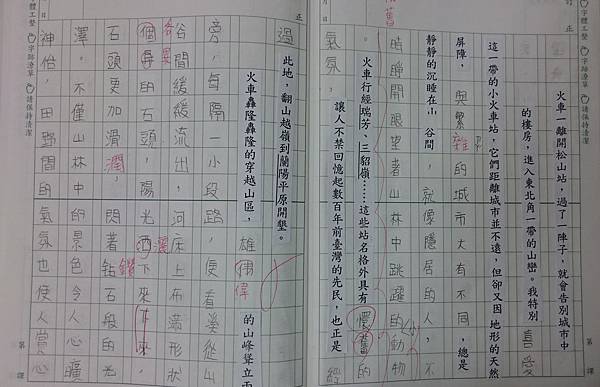 字體工整 字跡潦草 請保持清潔
訂正
火車一離開松山站,過了一陣子,就會告別城市中
的樓房,進入東北角一帶的山巒。我特別喜愛
這一帶的小火車站,它們距離城市並不遠,但卻又因地形的天然
屏障,與繁雜的城市大有不同,總是
靜靜的沉睡在山谷間,就像隱居的人,不
時睜開眼望著山林中跳躍的小動物
。火車行經瑞芳、三貂嶺……這些站名格外具有懷舊的
舊
氣氛,讓人不禁回憶起數百年前臺灣的先民,也正是經
正
過此地,翻山越嶺到蘭陽平原開墾。
火車轟隆轟隆的穿越山區,雄偉的山峰聳立兩
旁,每隔一小段路,便看溪從山
谷間緩緩流出,河床上布滿形狀
各異的石頭,陽光灑下來,
石頭更加滑潤,閃著鑽石般的光
澤。不僅山林中的景色令人心曠
神怡,田野間的氣氛也使人賞心
字體工整 字跡潦草 請保持清潔
第 課